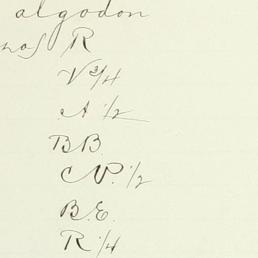 algodon
nos R
V 3/4
A 1/2
BB.
CN. 1/2
B.E.
R 1/4